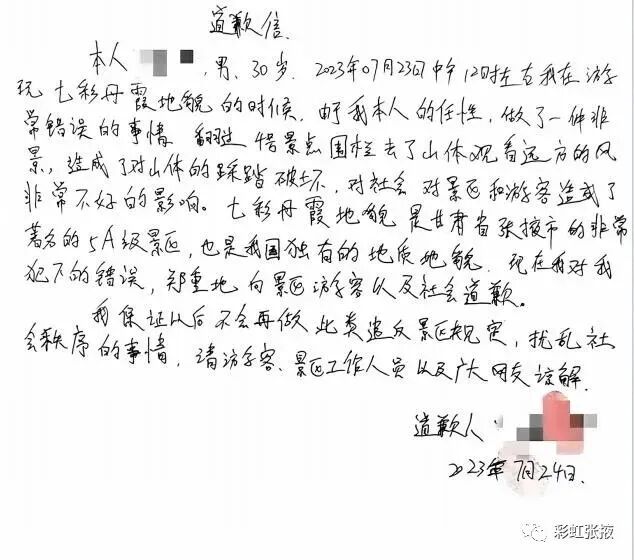 道歉信
本人 ,男、30岁.2023年07月23日中午12时左右我在游
玩七彩丹霞地貌的时候.由于我本人的任性,做了一件非
常错误的事情 翻过 景点围栏去了山体观看远方的风
景,造成了对山体的踩踏破坏,对社会对景区和游客造成了
非常不好的影响。七彩丹霞地貌是甘肃省张掖市的非常
著名的5A级景区,也是我国独有的地质地貌.现在我对我
犯下的错误,郑重地向景区游客以及社会道歉。
我保证以后不会再做此类违反景区规定,扰乱社
会秩序的事情,请游客、景区工作人员以及广大网友谅解.
道歉人:
2023年7月24日.
彩虹张掖